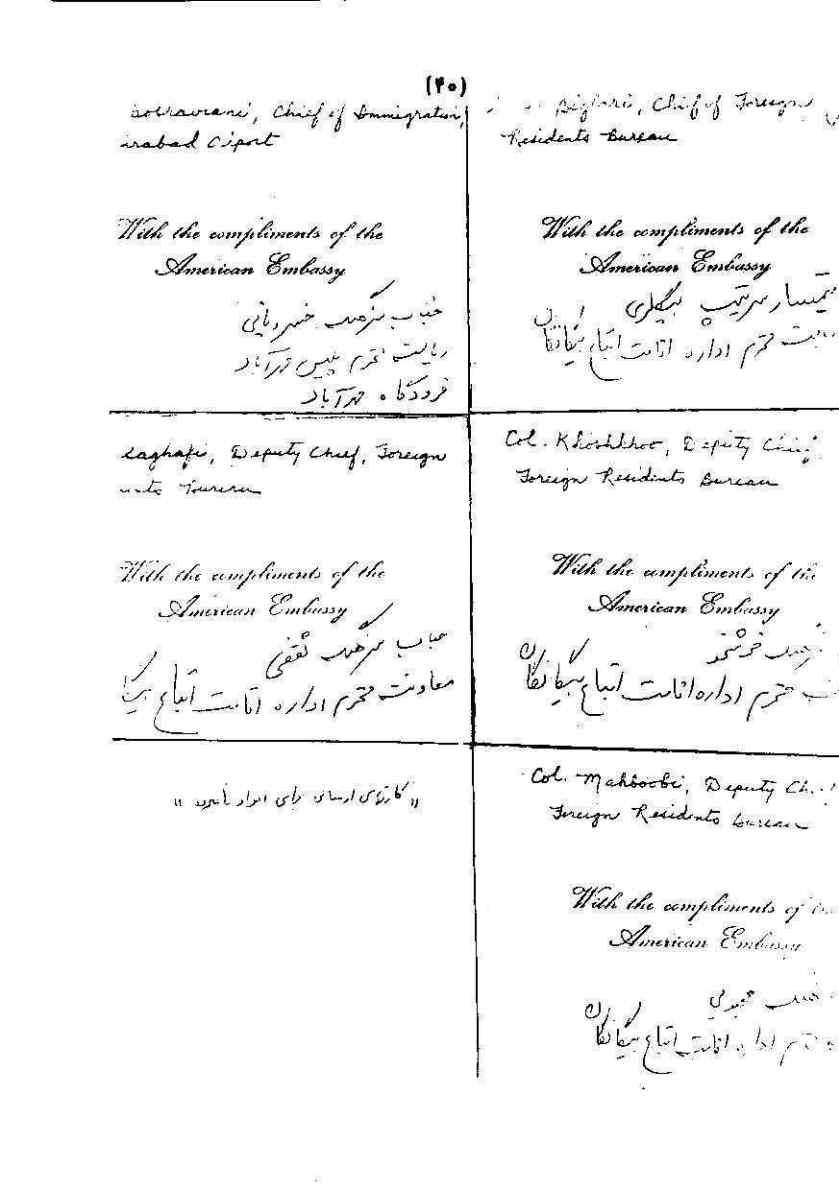 (۴۰)
Chief of Immigration,
irabad Airport
With the compliments of the
American Embassy
جناب سرهنگ خسروانی
ریاست محترم پلیس مهرآباد
فرودگاه مهرآباد
Biglari, Chief of Foreign
Residents Bureau
With the compliments of the
American Embassy
تیمسار سرتیپ بیگلری
ریاست محترم اداره اقامت اتباع بیگانگان ایران
saghafi, Deputy Chief, Foreign
Bureau
With the compliments of the
American Embassy
جناب سرهنگ ثقفی
معاونت محترم اداره اقامت اتباع
Col. Khoshkhoo, Deputy Chief,
Foreign Residents Bureau
With the compliments of the
American Embassy
سرهنگ
محترم اداره اقامت اتباع بیگانگان
"کارتهای ارسالی برای افراد نامبرده"
Col. Mahboobi, Deputy Ch
Foreign Residents Bureau
With the compliments of
American Embassy
محبوبی
اداره اقامت اتباع بیگانگان